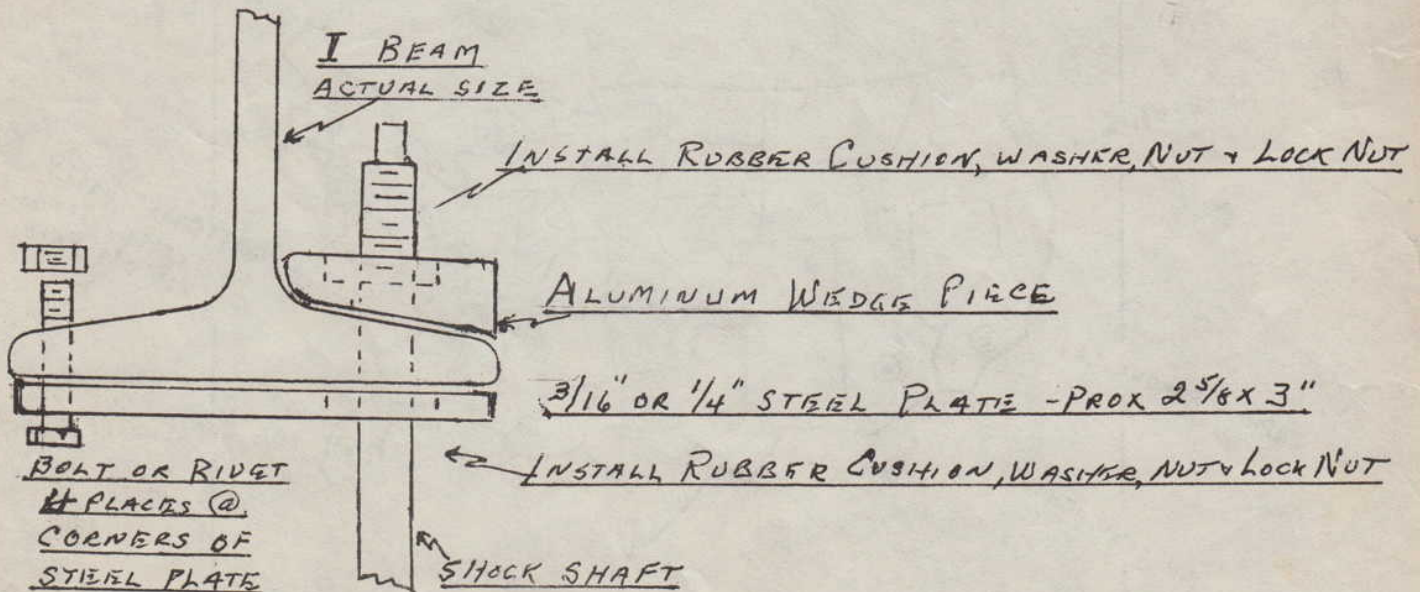 I BEAM
ACTUAL SIZE
INSTALL RUBBER CUSHION, WASHER, NUT & LOCK NUT
ALUMINUM WEDGE PIECE
3/16" OR 1/4" STEEL PLATE - PROX 2 5/8 X 3"
INSTALL RUBBER CUSHION, WASHER, NUT & LOCK NUT
BOLT OR RIVET
4 PLACES @
CORNERS OF
STEEL PLATE
SHOCK SHAFT